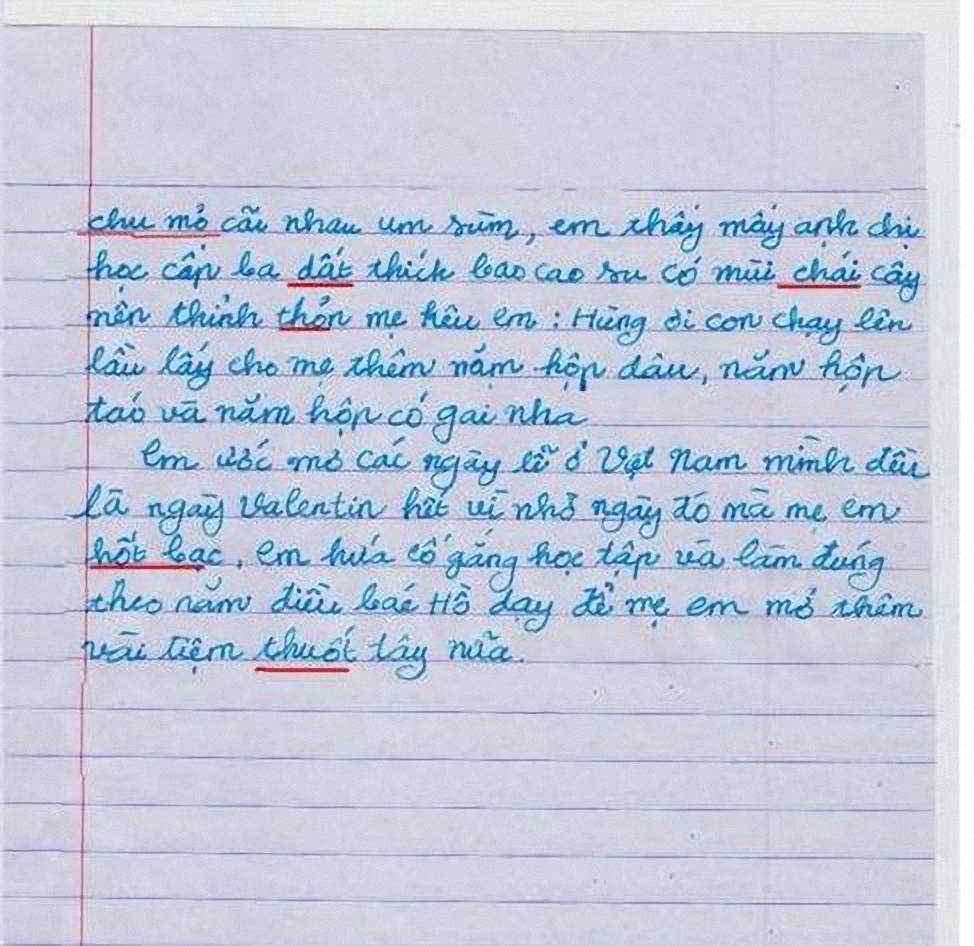 chu mỏ cãi nhau um sùm, em thấy mấy anh chị
học cấp ba dất thích bao cao su có mùi chái cây
nên thỉnh thỏn mẹ kêu em : Hùng ơi con chạy lên
lầu lấy cho mẹ thêm năm hộp dâu, năm hộp
táo và năm hộp có gai nha
Em ước mơ các ngày lễ ở Việt Nam mình đều
là ngày Valentin hết vì nhờ ngày đó mà mẹ em
hốt bạc, em hứa cố gắng học tập và làm đúng
theo năm điều bác Hồ dạy để mẹ em mở thêm
vài tiệm thuốt tây nữa.